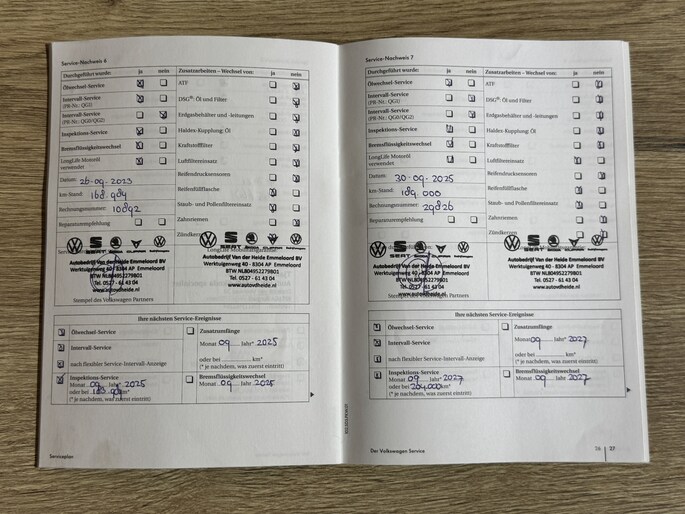 Service-Nachweis 6
Durchgeführt wurde: ja nein
Ölwechsel-Service
Intervall-Service
(PR-Nr.: QG1)
Intervall-Service
(PR-Nr.: QG0/QG2)
Inspektions-Service
Bremsflüssigkeitswechsel
LongLife Motoröl
verwendet
Datum: 26-09-2023
km-Stand: 168.984
Rechnungsnummer: 10892
Reparaturempfehlung
Zusatzarbeiten – Wechsel von: ja nein
ATF
DSG®: Öl und Filter
Erdgasbehälter und -leitungen
Haldex-Kupplung: Öl
Kraftstofffilter
Luftfiltereinsatz
Reifendrucksensoren
Reifenfüllflasche
Staub- und Pollenfiltereinsatz
Zahnriemen
Zündkerzen
SEAT
Autobedrijf Van der Heide Emmeloord BV
Werktuigenweg 40 - 8304 AP Emmeloord
BTW NL804952279B01
Tel. 0527 - 61 43 04
www.autovdheide.nl
Stempel des Volkswagen Partners
Ihre nächsten Service-Ereignisse
Ölwechsel-Service
Intervall-Service
nach flexibler Service-Intervall-Anzeige
Inspektions-Service
Monat 09 Jahr* 2025
Zusatzumfänge
Monat 09 Jahr* 2025
oder bei km*
(* je nachdem, was zuerst eintritt)
Bremsflüssigkeitswechsel
Monat 09 Jahr 2025
Serviceplan
Service-Nachweis 7
Durchgeführt wurde: ja nein
Ölwechsel-Service
Intervall-Service
(PR-Nr.: QG1)
Intervall-Service
(PR-Nr.: QG0/QG2)
Inspektions-Service
Bremsflüssigkeitswechsel
LongLife Motoröl
verwendet
Datum: 30-09-2025
km-Stand: 189.000
Rechnungsnummer: 29826
Reparaturempfehlung
Zusatzarbeiten – Wechsel von: ja nein
ATF
DSG®: Öl und Filter
Erdgasbehälter und -leitungen
Haldex-Kupplung: Öl
Kraftstofffilter
Luftfiltereinsatz
Reifendrucksensoren
Reifenfüllflasche
Staub- und Pollenfiltereinsatz
Zahnriemen
Zündkerzen
SEAT
Autobedrijf Van der Heide Emmeloord BV
Werktuigenweg 40 - 8304 AP Emmeloord
BTW NL804952279B01
Tel. 0527 - 61 43 04
www.autovdheide.nl
Stempel des Volkswagen Partners
Ihre nächsten Service-Ereignisse
Ölwechsel-Service
Intervall-Service
nach flexibler Service-Intervall-Anzeige
Inspektions-Service
Monat 09 Jahr* 2027
oder bei 204.000 km*
(* je nachdem, was zuerst eintritt)
Zusatzumfänge
Monat 09 Jahr* 2027
oder bei km*
(* je nachdem, was zuerst eintritt)
Bremsflüssigkeitswechsel
Monat 09 Jahr 2027
Der Volkswagen Service
26 27